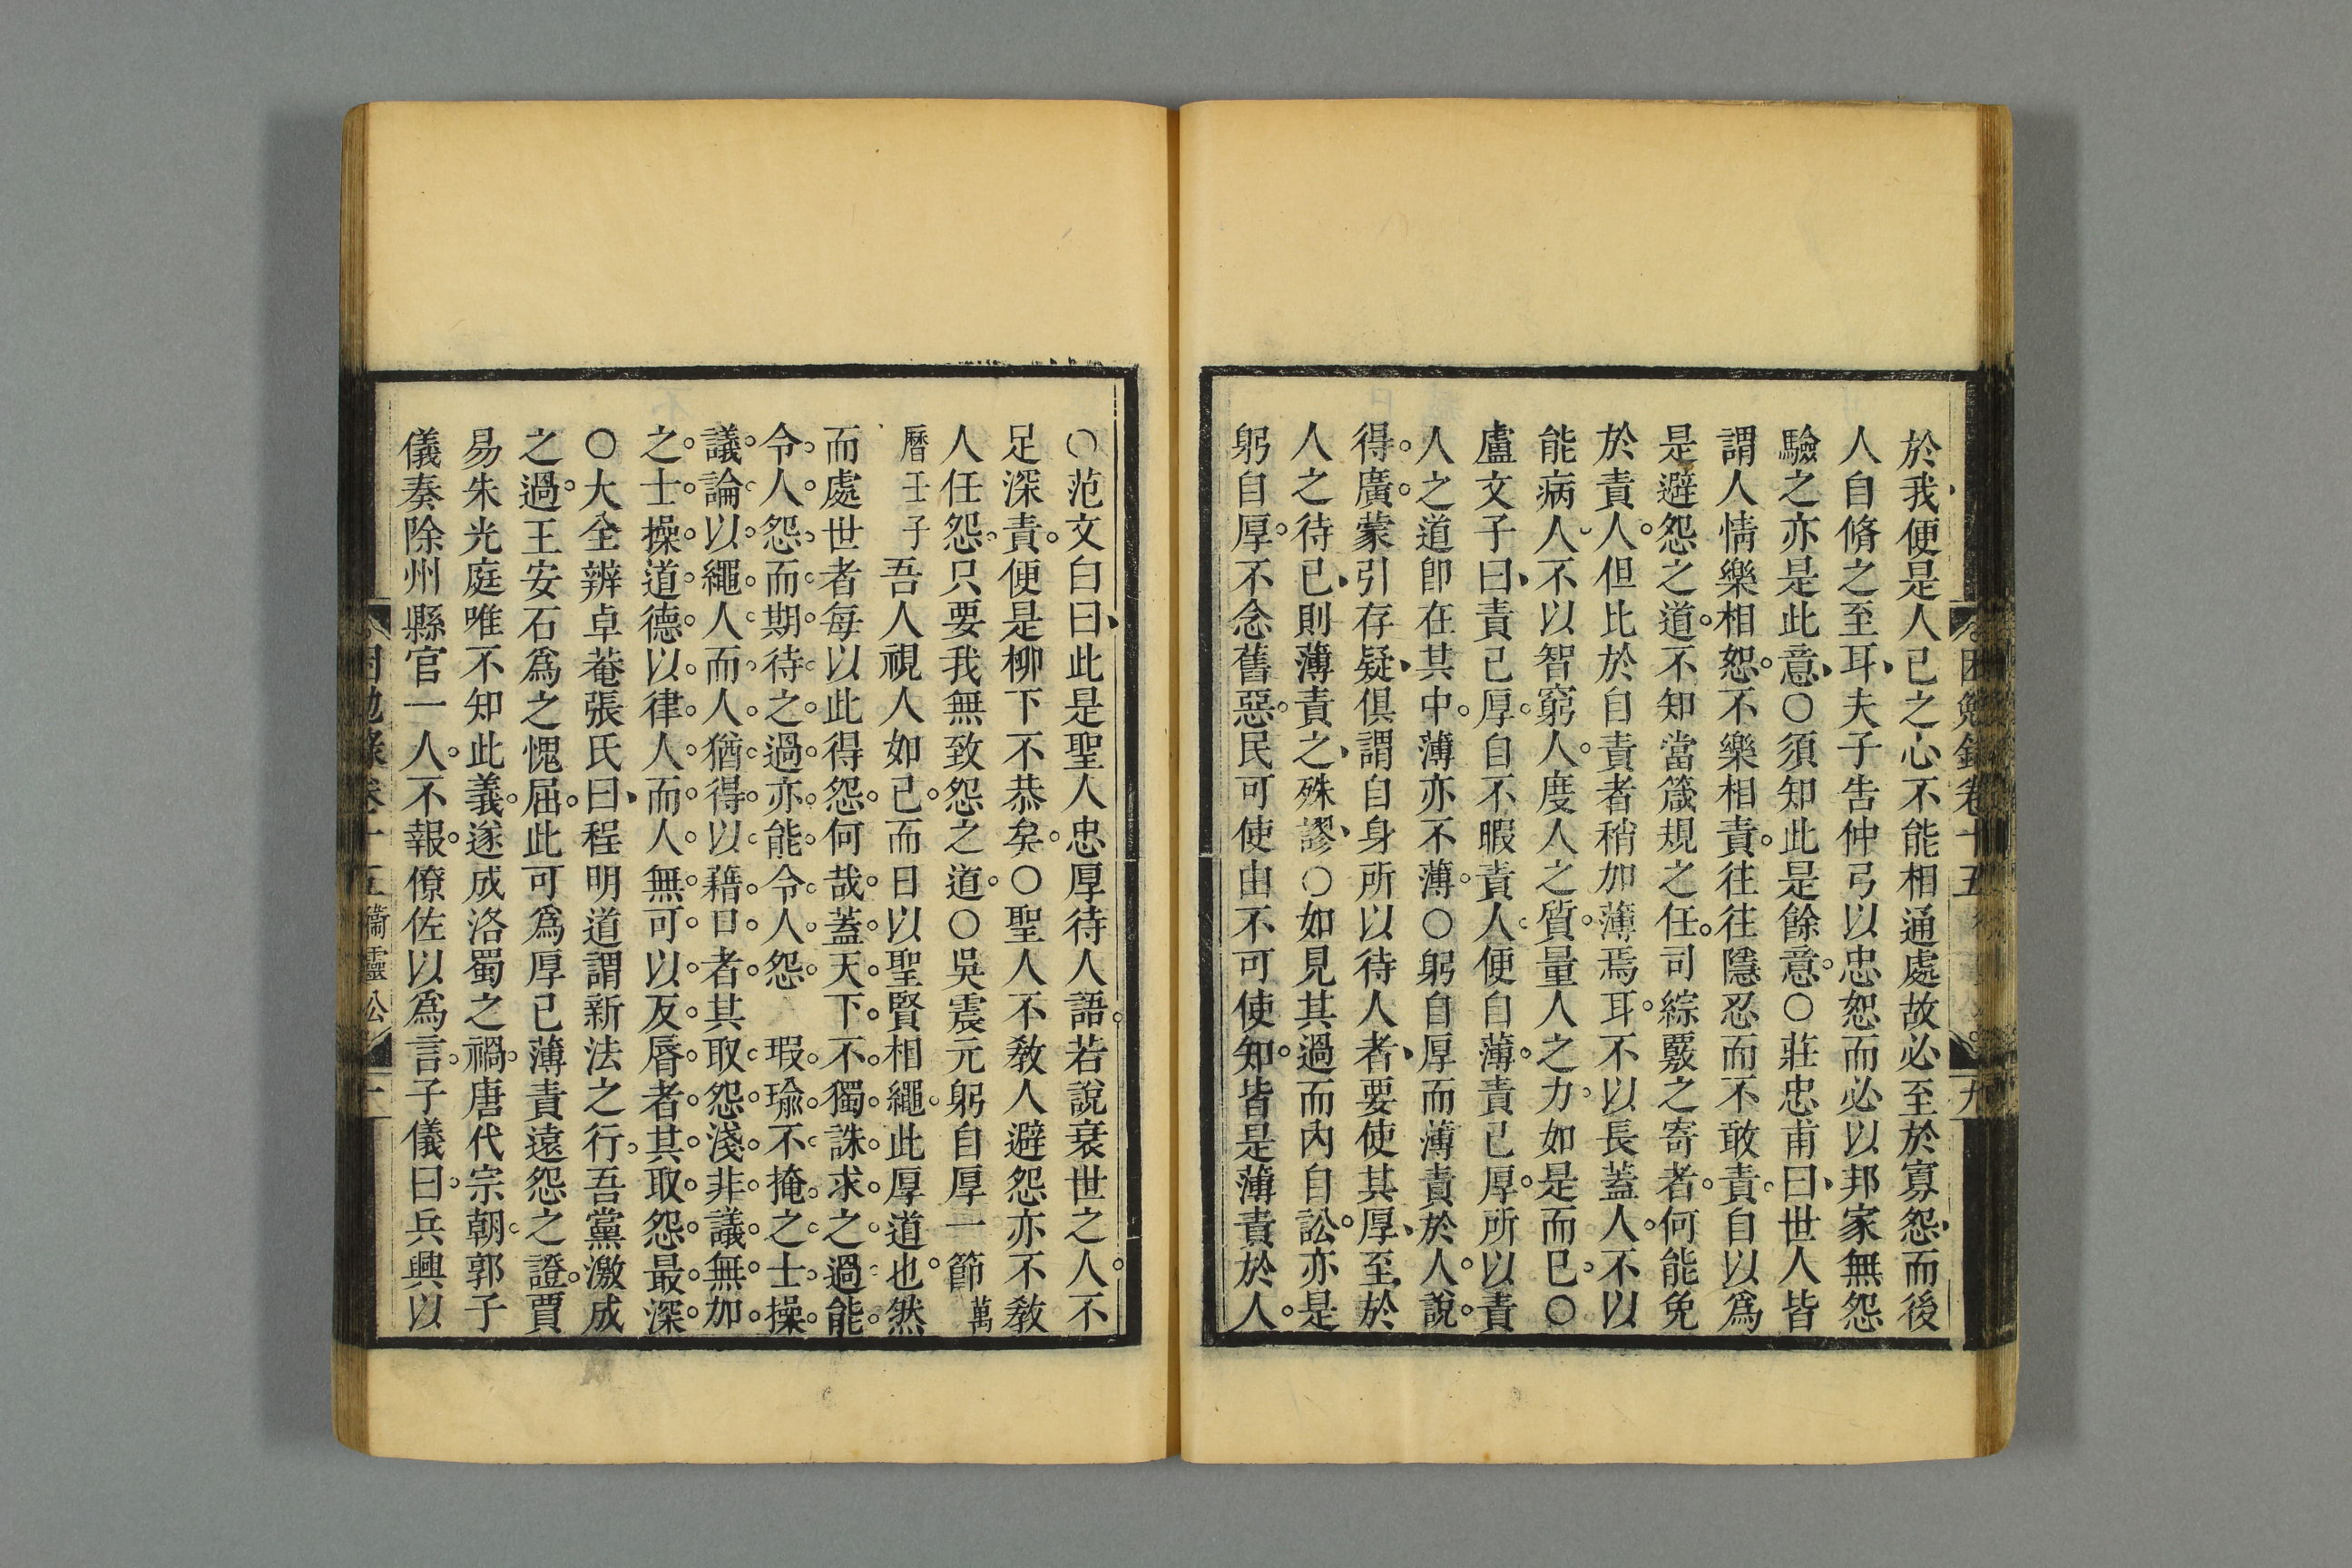 於我便是人已之心不能相通處故必至於寡怨而後
人自脩之至耳夫子告仲弓以忠恕而必以邦家無怨
驗之亦是此意○須知此是餘意○莊忠甫曰世人皆
謂人情樂相恕不樂相責往往隱忍而不敢責自以爲
是避怨之道不知當箴規之任司綜覈之寄者何能免
於責人但比於自責者稍加薄焉耳不以長蓋人不以
能病人不以智窮人度人之質量人之力如是而已○
盧文子曰責己厚自不暇責人便自薄責已厚所以責
人之道卽在其中薄亦不薄○躬自厚而薄責於人說
得廣蒙引存疑俱謂自身所以待人者要使其厚至於
人之待已則薄責之殊謬○如見其過而內自訟亦是
躬自厚不念舊惡民可使由不可使知皆是薄責於人
困勉錄卷十五
九
○范文白曰此是聖人忠厚待人語若說衰世之人不
足深責便是柳下不恭矣○聖人不敎人避怨亦不敎
人任怨只要我無致怨之道○吳震元躬自厚一節萬
曆壬子吾人視人如己而日以聖賢相繩此厚道也然
而處世者每以此得怨何哉蓋天下不獨誅求之過能
令人怨而期待之過亦能令人怨 瑕瑜不掩之士操
議論以繩人而人猶得以藉口者其取怨淺非議無加
之士操道德以律人而人無可以反脣者其取怨最深
○大全辨卓菴張氏曰程明道謂新法之行吾黨激成
之過王安石爲之愧屈此可爲厚已薄責遠怨之證賈
易朱光庭唯不知此義遂成洛蜀之禍唐代宗朝郭子
儀奏除州縣官一人不報僚佐以爲言子儀曰兵興以
困勉錄卷十五 衞靈公